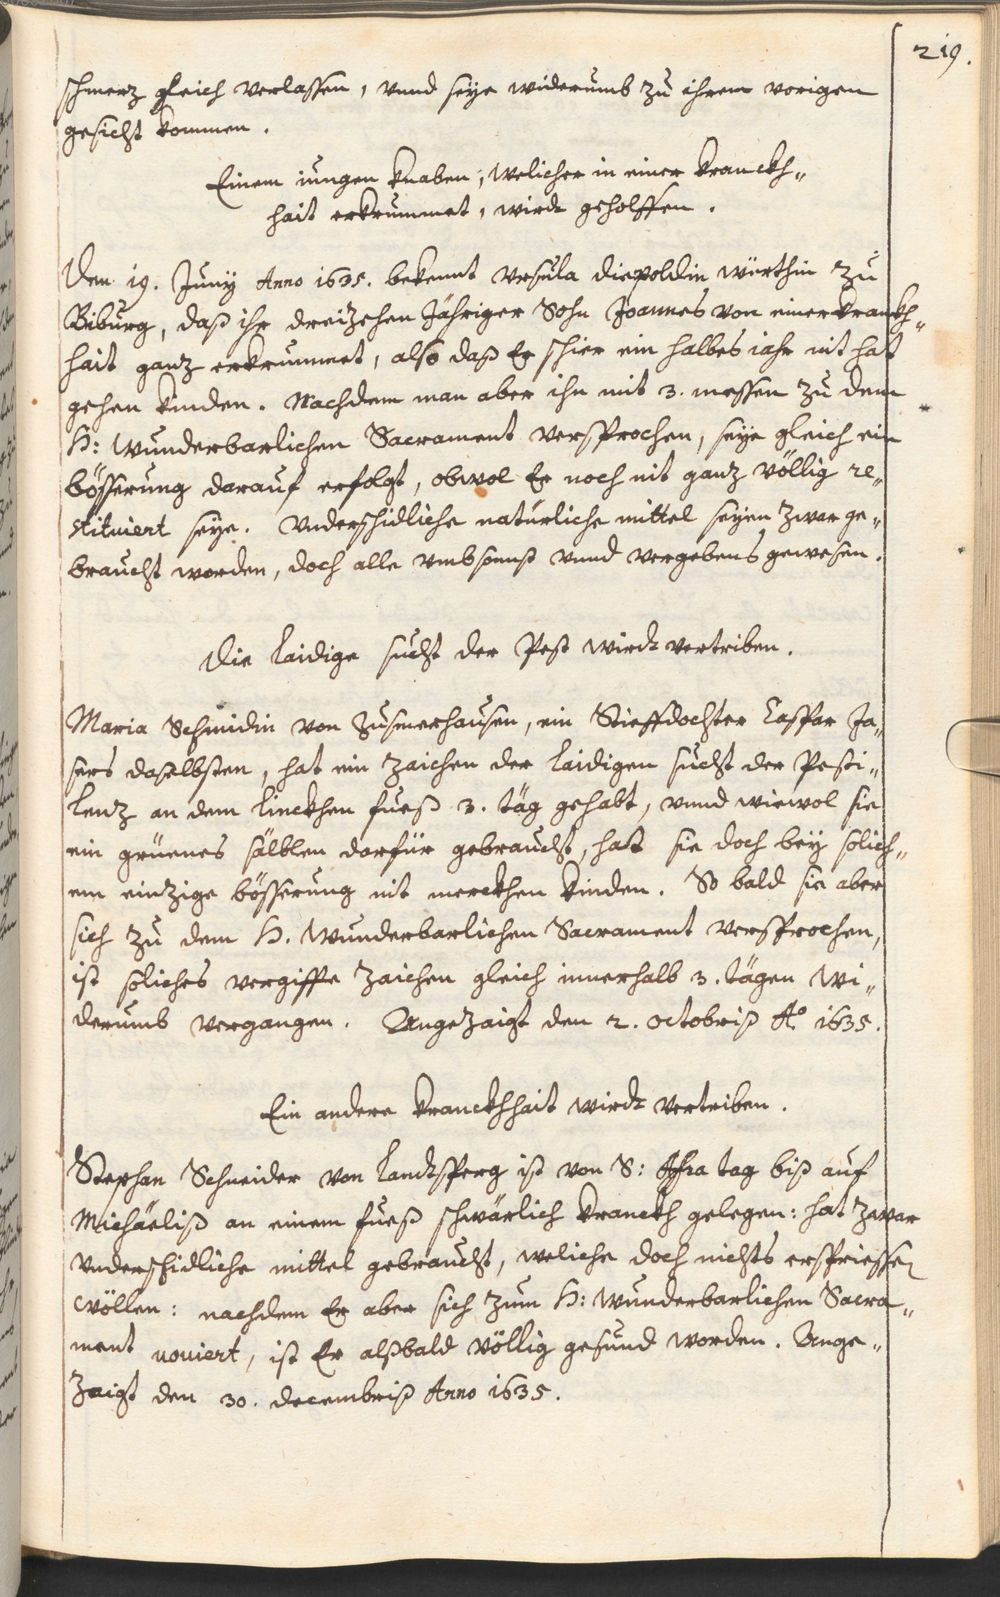 219.
schmerz gleich verlassen, vnnd seye widerumb zu ihrem vorigen
gesicht kommen.
Einem iungen knaben, welicher in einer kranckh„
hait erkrummet, wirdt geholffen.
Den 19. Juny Anno 1635. bekennt Vrsula Diepoldin würthin zu
Biburg, daß ihr dreizehen Jähriger Sohn Joannes von einer kranckh„
hait ganz erkrummet, also daß Er schier ein halbes iahr nit hat
gehen kinden. Nachdem man aber ihn mit 3. messen zu dem
H: Wunderbarlichen Sacrament versprochen, seye gleich ein
bösserung darauf erfolgt, obwol Er noch nit ganz völlig re„
stituiert seye. Vnderschidliche natürliche mittel seyen zwar ge„
braucht worden, doch alle vmbsonst vnnd vergebens gewesen.
Die laidige sucht der Pest wirdt vertriben.
Maria Schmidin von Zusmerhausen, ein Stieffdochter Caspar Ja„
sers daselbsten, hat ein zaichen der laidigen sucht der Pesti„
lenz an dem linckhen fueß 3. täg gehabt, vnnd wiewol sie
ein grüenes sälblen darfür gebraucht, hat sie doch bey solich„
em eintzige bösserung nit merckhen kinden. So bald sie aber
sich zu dem H. Wunderbarlichen Sacrament versprochen,
ist soliches vergiffte zaichen gleich innerhalb 3. tägen wi„
derumb vergangen. Angezaigt den 2. octobriß Aº 1635.
Ein andere kranckhhait wirdt vertriben.
Stephan Schneider von Landtsperg ist von S: Afra tag biß auf
Michäeliß an einem fueß schwärlich kranckh gelegen: hat zwar
vnderschidliche mittel gebraucht, weliche doch nichts ersprießen
wöllen: nachdem Er aber sich zum H: Wunderbarlichen Sacra„
ment uouiert, ist Er alßbald völlig gesund worden. Ange„
zaigt den 30. decembriß Anno 1635.